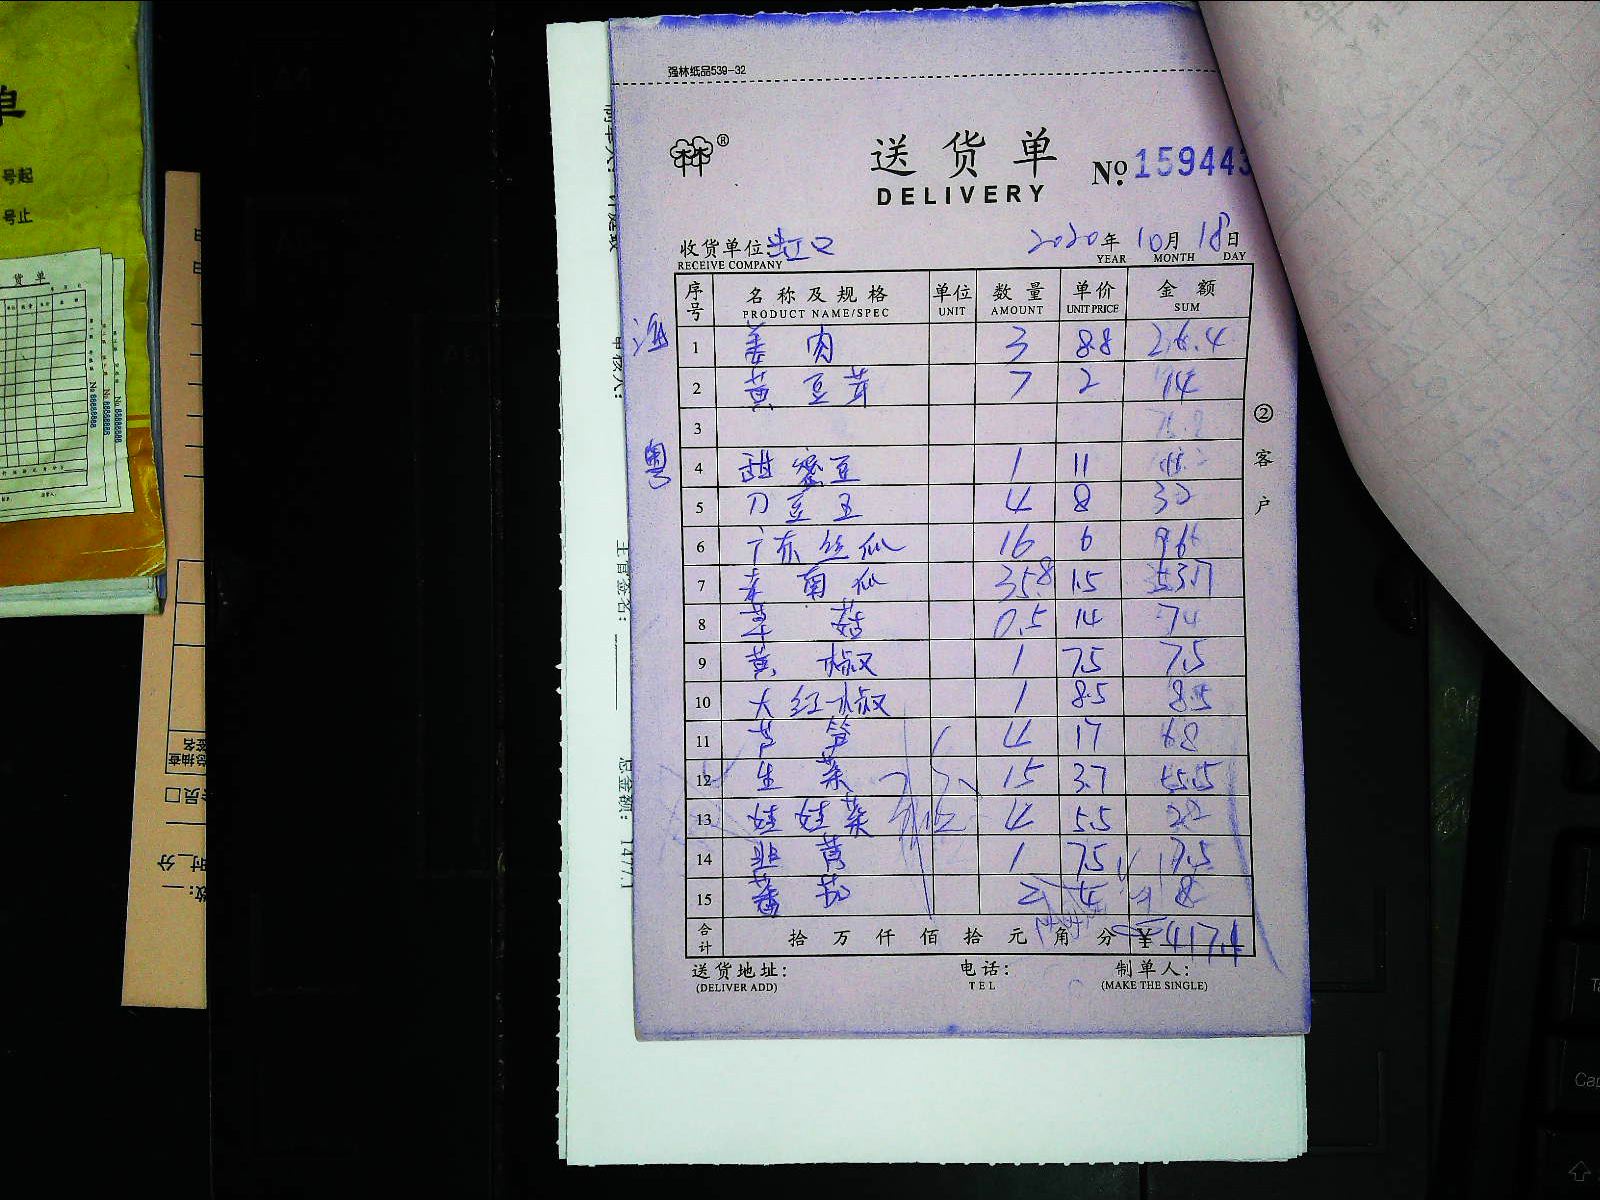 强林纸品539-32
林®
送货单
DELIVERY
№ 159443
收货单位 虹口 2020年 10月 18日
RECEIVE COMPANY YEAR MONTH DAY
序号 名称及规格 单位 数量 单价 金额
PRODUCT NAME/SPEC UNIT AMOUNT UNIT PRICE SUM
1 姜肉 3 8.8 26.4
2 黄豆芽 7 2 14
3
粤
4 甜蜜豆 1 11 11
5 刀豆王 4 8 32
6 广东丝瓜 16 6 96
7 老南瓜 35.8 1.5 53.7
8 草菇 0.5 14 7
9 黄椒 1 7.5 7.5
10 大红椒 1 8.5 8.5
11 芦笋 4 17 68
12 生菜 15 3.7 55.5
13 娃娃菜 4 5.5 22
14 韭黄 1 7.5 7.5
15 蕃茄 2 4 8
合计 拾 万 仟 佰 拾 元 角 分 ¥
送货地址: 电话: 制单人:
(DELIVER ADD) TEL (MAKE THE SINGLE)
②客户
总金额: 1477.1
主管签名:
审核人:
号起
号止
货单